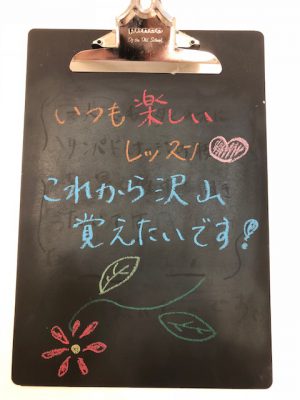 いつも楽しい
レッスン♡
これから沢山
覚えたいです!